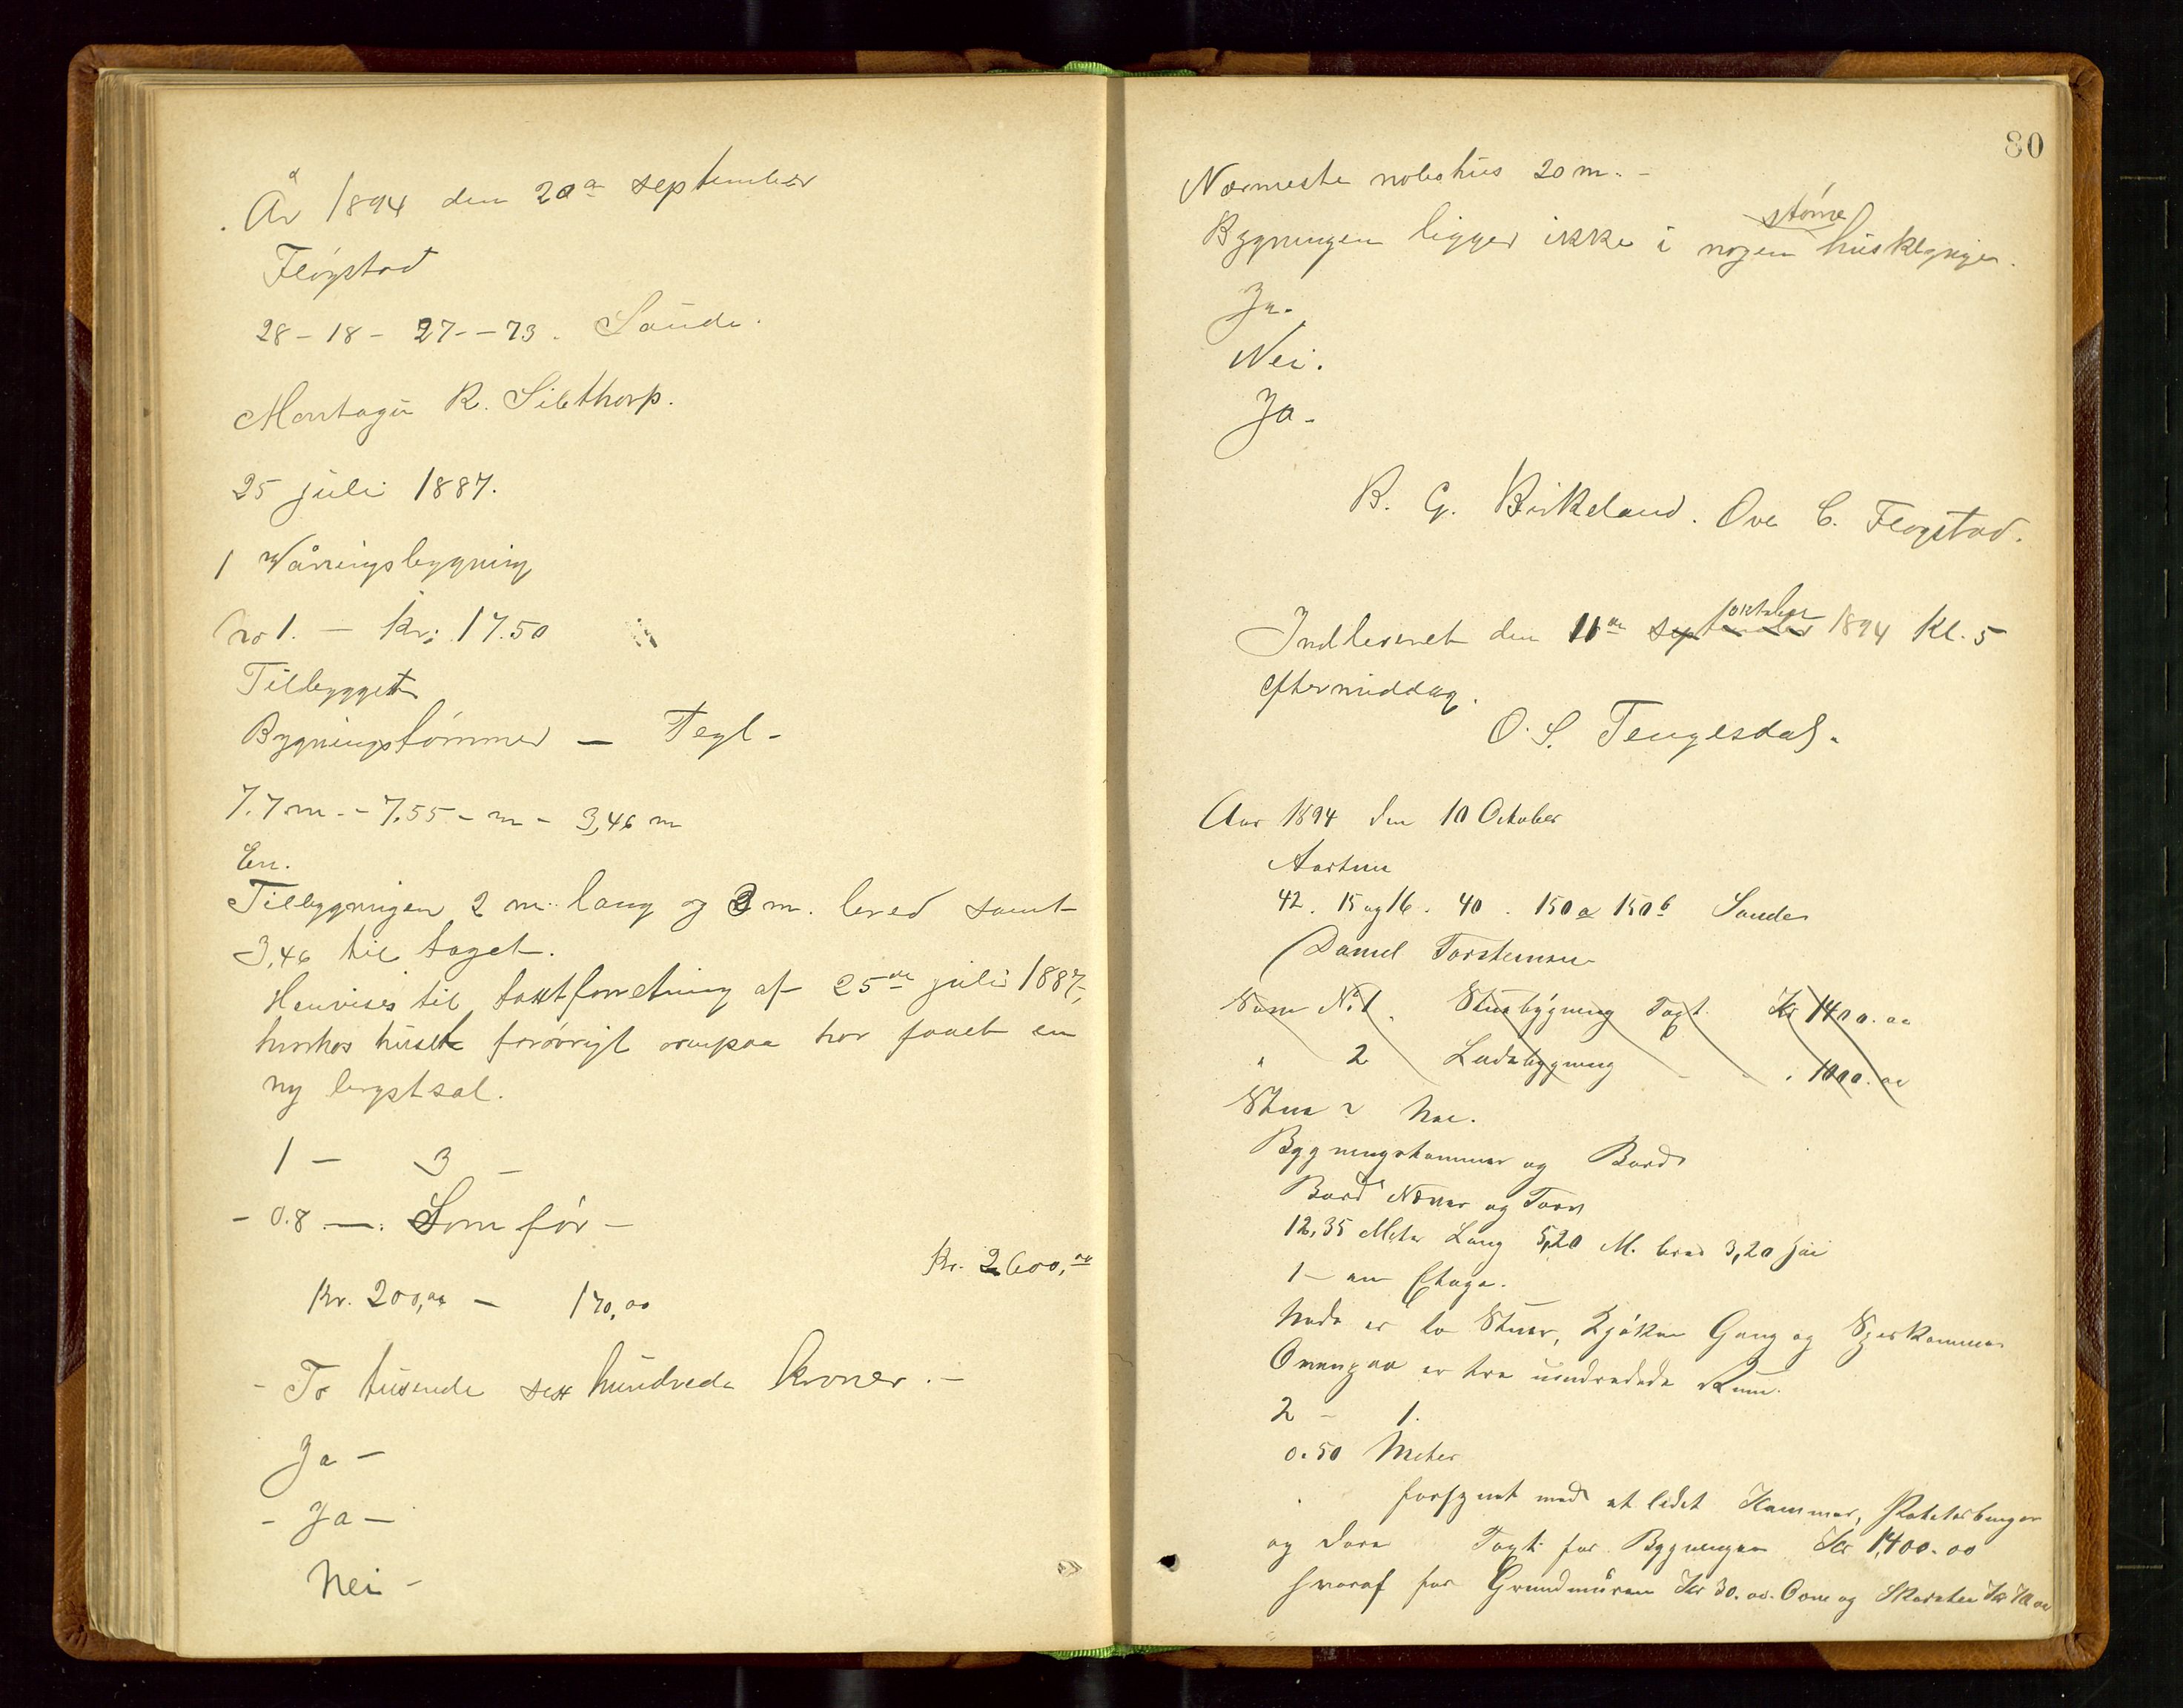 År 1894 den 20de september
Fløgstad
28 - 18 - 27 - - 73. Saude.
Montagu R. Sibthorp.
25 juli 1887.
1 Våningsbygning
No 1. — kr: 17.50
Tilbygget
Bygningstømmer — Tegl -
7.7 m. - 7.55 - m - 3,46 m
En.
Tilbygningen 2 m. lang og 3 m. bred samt
3,46 til taget.
Henvises til taxtforretning af 25de juli 1887,
hvorhos huset forøvrigt ovenpaa har faaet en
ny
1 — 3 —
- 0.8 —. Som før —
Kr. 2600,00
Kr. 200,00 — 170,00
- To tusende sex hundrede kroner. —
Ja —
- Ja —
Nei -
80
Nærmeste nabohus 20 m. -
Bygningen ligger ikke i nogen større husklynge.
Ja.
Nei.
Ja -
B. G. Birkeland. Ove C. Fløgstad.
Indleveret den 11te september oktober 1894 Kl. 5
eftermiddag.
O. S. Tengesdal.
Aar 1894 den 10 October
Aartun
42. 15 og 16. 40. 150a 150b Saude
Daniel Torstensen
Som No 1. Stuebygning Taxt Kr 1400.00
" 2 Ladebygning - - " 1000.00
Stue
Bygningstømmer og Bord
Bord Næver og Torv
12,35 Meter Lang 5,20 M. bred 3,20 høi
1 — en Etage.
Nede er to Stuer, Kjøken Gang og Spiskammer
Ovenpaa er tre uindredede Rum.
2 - 1.
0.50 Meter
forsynet med et lidet Kammer,
og Taxt for Bygningen Kr 1,400.00
hvoraf for Grundmuren Kr 30.00. Ovne og Skorsten Kr